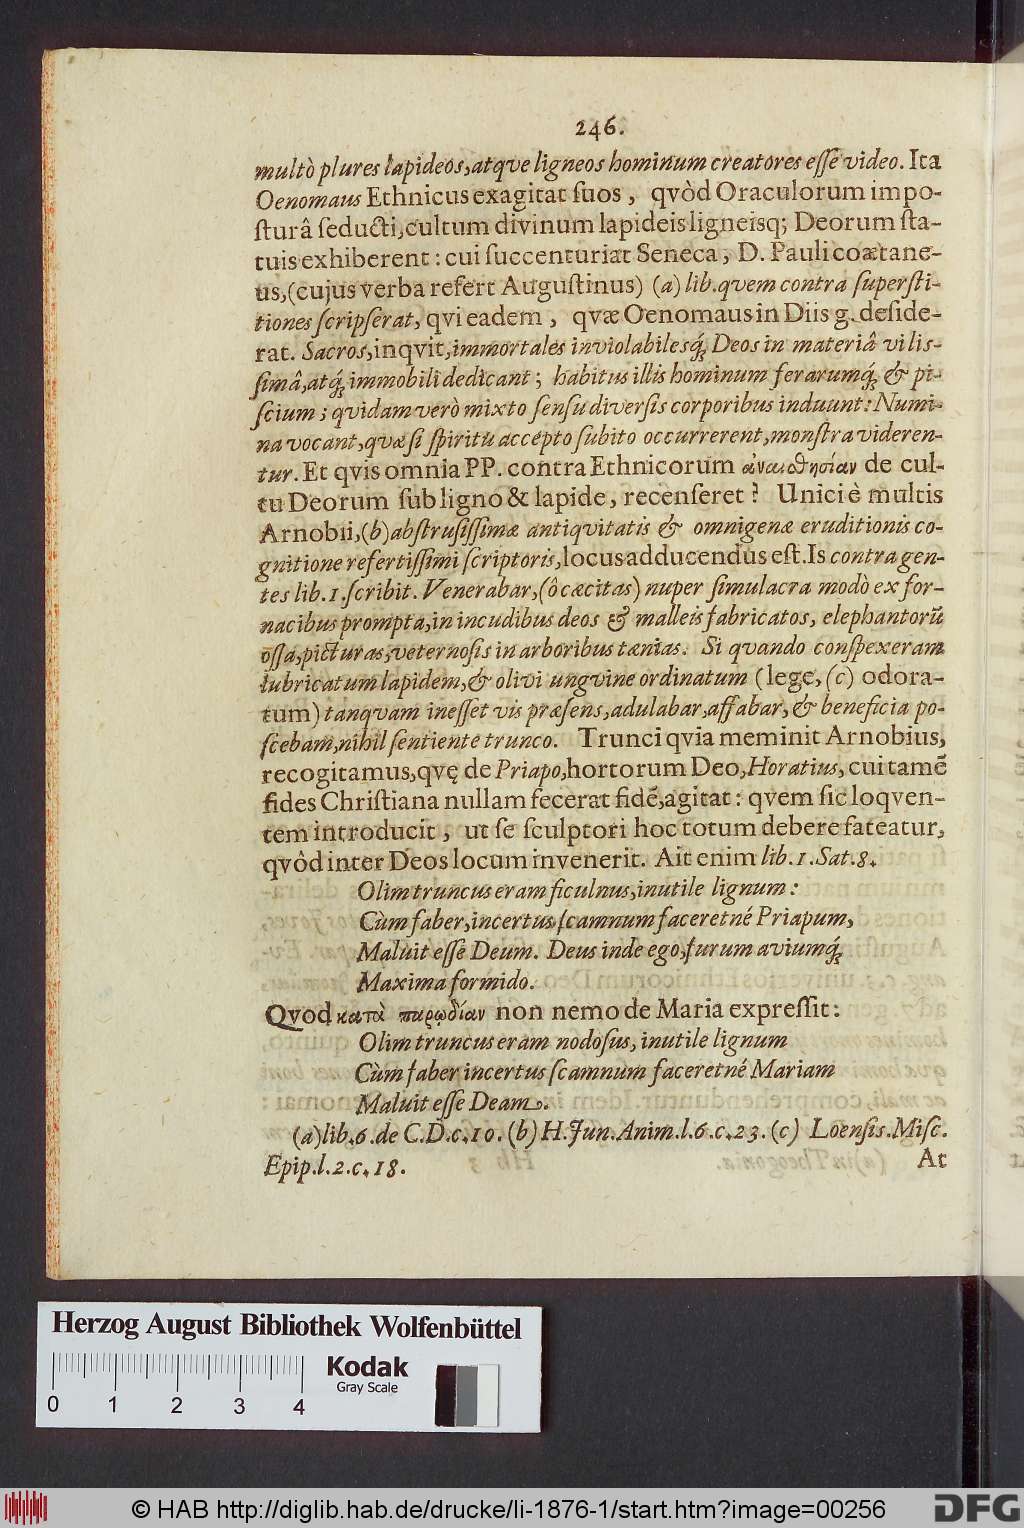 246.
multò plures lapideos, atque ligneos hominum creatores eſſe video. Ita
Oenomaus Ethnicus exagitat ſuos, qvòd Oraculorum impo-
ſturâ ſeducti, cultum divinum lapideis ligneisq; Deorum ſta-
tuis exhiberent: cui ſuccenturiat Seneca, D. Pauli coætane-
us, (cujus verba refert Auguſtinus) (a) lib. quem contra ſuperſti-
tiones ſcripſerat, qvi eadem, qvæ Oenomaus in Diis g. deſide-
rat. Sacros, inqvit, immortales inviolabilesq́; Deos in materiâ vilis-
ſimâ, atq́; immobili dedicant; habitus illis hominum ferarumq́; & pi-
ſcium; quidam verò mixto ſenſu diverſis corporibus induunt: Numi-
na vocant, quæ ſi ſpiritu accepto ſubito occurrerent, monſtra videren-
tur. Et qvis omnia PP. contra Ethnicorum ἀναισθησίαν de cul-
tu Deorum ſub ligno & lapide, recenſeret? Unici è multis
Arnobii, (b) abſtruſiſſimæ antiqvitatis & omnigenæ eruditionis co-
gnitione refertiſſimi ſcriptoris, locus adducendus eſt. Is contra gen-
tes lib. 1. ſcribit. Venerabar, (ô cæcitas) nuper ſimulacra modò ex for-
nacibus prompta, in incudibus deos & malleis fabricatos, elephantorũ
oſſa, picturas, veternoſis in arboribus tænias. Si quando conſpexeram
lubricatum lapidem, & olivi ungvine ordinatum (lege, (c) odora-
tum) tanquam ineſſet vis præſens, adulabar, affabar, & beneficia po-
ſcebam, nihil ſentiente trunco. Trunci qvia meminit Arnobius,
recogitamus, qvę de Priapo, hortorum Deo, Horatius, cui tamẽ
fides Chriſtiana nullam fecerat fidẽ, agitat: qvem ſic loqven-
tem introducit, ut ſe ſculptori hoc totum debere fateatur,
qvôd inter Deos locum invenerit. Ait enim lib. 1. Sat. 8.
Olim truncus eram ficulnus, inutile lignum:
Cùm faber, incertus, ſcamnum faceretné Priapum,
Maluit eſſe Deum. Deus inde ego, furum aviumq́;
Maxima formido.
Qvod κατὰ παρῳδίαν non nemo de Maria expreſſit:
Olim truncus eram nodoſus, inutile lignum
Cùm faber incertus ſcamnum faceretné Mariam
Maluit eſſe Deam.
(a) lib. 6. de C. D. c. 10. (b) H. Jun. Anim. l. 6. c. 23. (c) Loenſis. Miſc.
Epip. l. 2. c. 18.
At
Herzog August Bibliothek Wolfenbüttel
Kodak
Gray Scale
0 1 2 3 4
© HAB http://diglib.hab.de/drucke/li-1876-1/start.htm?image=00256
DFG